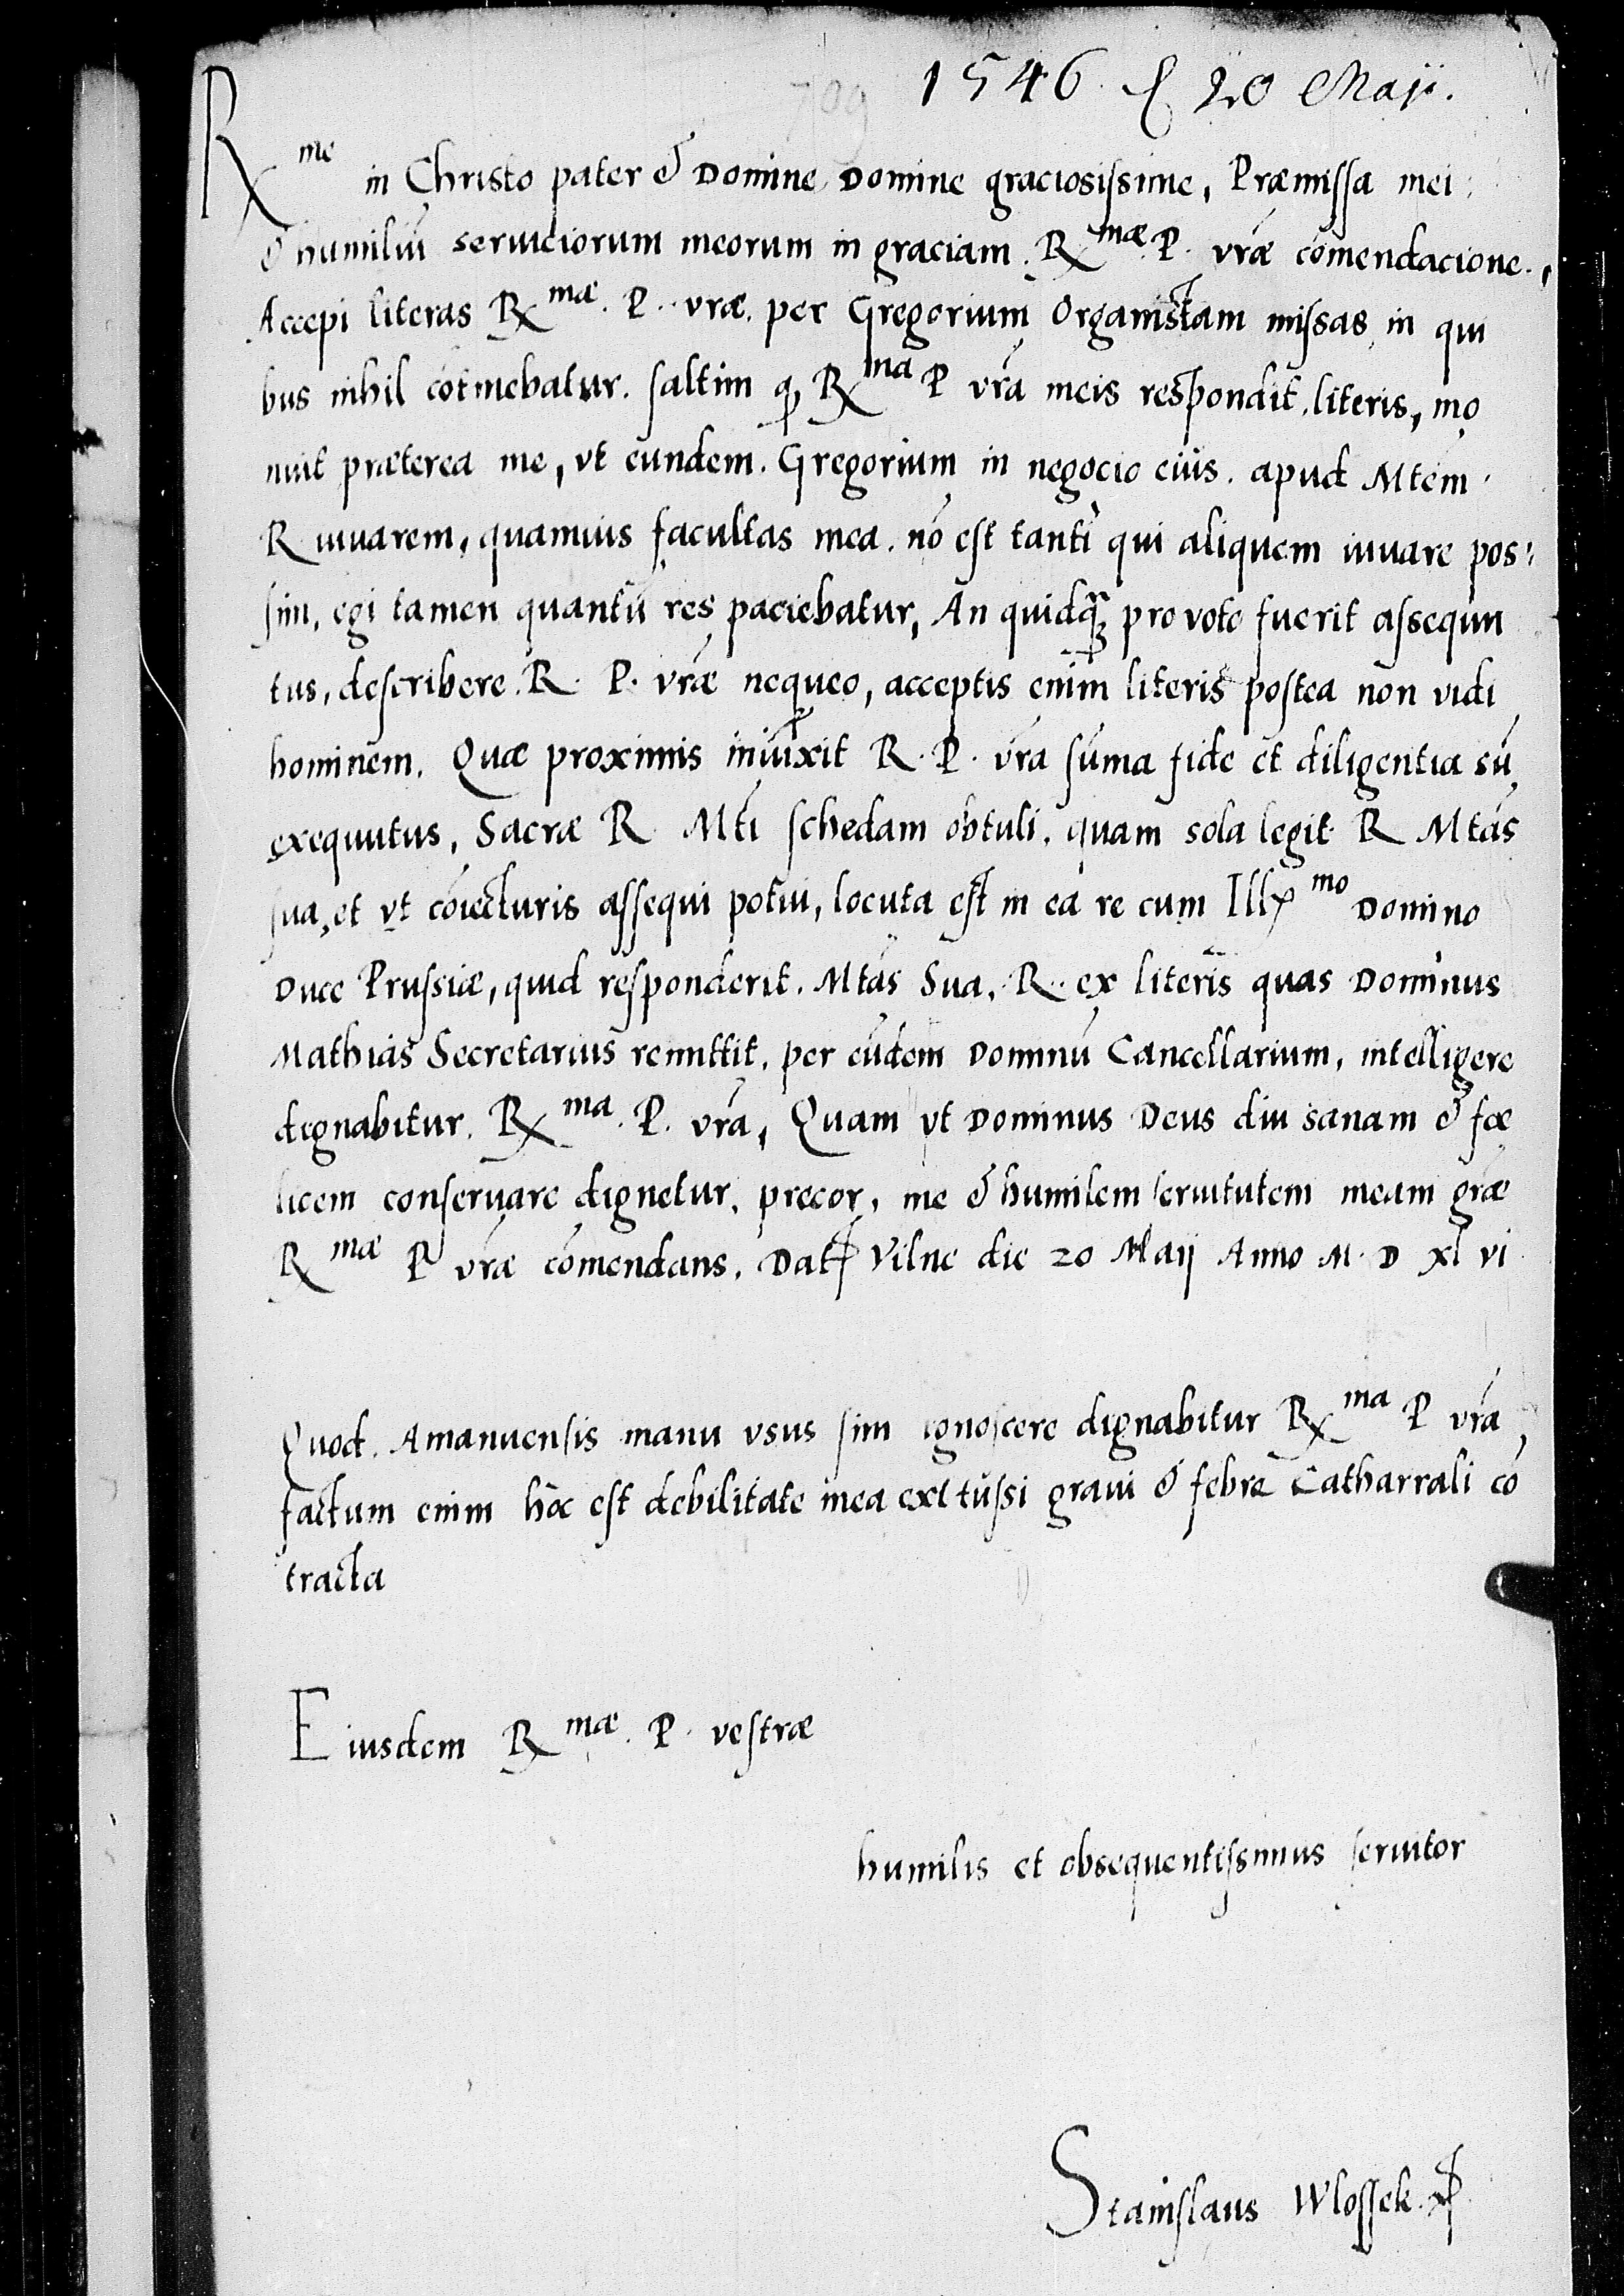 1546. 20 Maji.
709
Rme in Christo pater & Domine Domine graciosissime, Præmissa mei
& humiliū seruiciorum meorum in graciam. Rmæ P. vræ cōmendacione.,
Accepi literas Rmæ. P. vræ. per Gregorium Organistam missas in qui
bus nihil cōtinebatur. saltim q̨ Rma P vrā meis respondit literis, mo
nuit præterea me, vt eundem. Gregorium in negocio eius. apud Mtem
R iuuarem, quamuis facultas mea. nō est tanti qui aliquem iuuare pos:
sim, egi tamen quantū res paciebatur, An quidq̃ pro voto fuerit assequu
tus, describere. R. P. vræ nequeo, acceptis enim literis postea non vidi
hominem. Quæ proximis iniūxit R. P. vrā sūma fide et diligentia sū
exequutus, Sacræ R Mti schedam obtuli. quam sola legit R Mtas
sua, et vt cōiecturis assequi potui, locuta est in ea re cum Illmo Domino
Duce Prussiæ, quid responderit. Mtas Sua. R. ex literis quas Dominus
Mathias Secretarius remittit. per eūdem Dominū Cancellarium, intelligere
dignabitur. Rma. P. vrā, Quam vt Dominus Deus diu sanam & fœ
licem conseruare dignetur, precor, me & humilem seruitutem meam græ
Rmæ P vræ cōmendans. Dat Vilne die 20 Maij Anno M. D xl vi
Quod. Amanuensis manu vsus sim ignoscere dignabitur Rma P vrā,
factum enim hoc est debilitate mea ex tussi graui & febre Catharrali cō
tracta
Eiusdem Rmæ. P. vestræ
humilis et obsequentissimus seruitor
Stanislaus Wlossek.